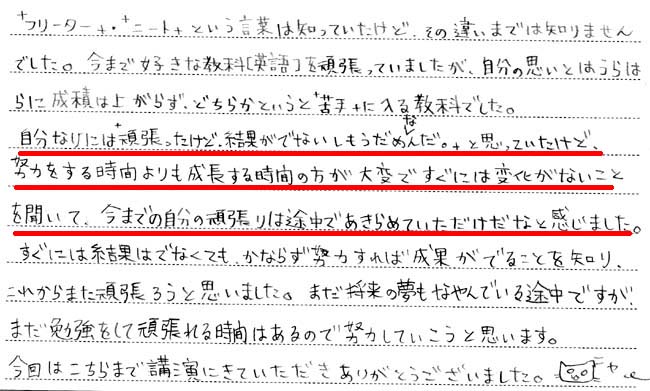 "フリーター"・"ニート"という言葉は知っていたけど、その違いまでは知りません
でした。今まで好きな教科[英語]を頑張っていましたが、自分の思いとはうらは
らに成積は上がらず、どちらかというと"苦手"に入る教科でした。
自分なりには"頑張ったけど、結果がでないしもうだめなんだ。"と思っていたけど、
努力をする時間よりも成長する時間の方が大変ですぐには変化がないこと
を聞いて、今までの自分の頑張りは途中であきらめていただけだなと感じました。
すぐには結果はでなくても、かならず努力すれば成果がでることを知り、
これからまた頑張ろうと思いました。まだ将来の夢もなやんでいる途中ですが、
まだ勉強をして頑張れる時間はあるので努力していこうと思います。
今回はこちらまで講演にきていただきありがとうございました。